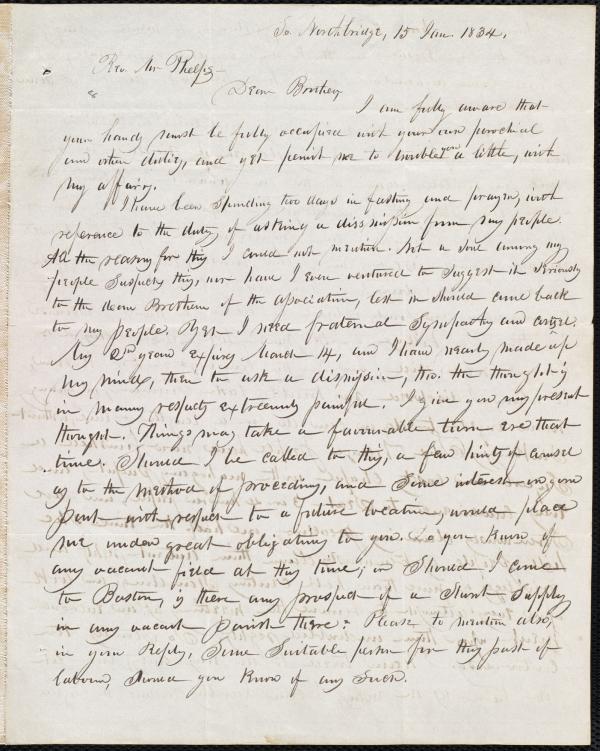 So. Northbridge, 15 Jan. 1834.
Rev. Mr Phelps
Dear Brother,
I am fully aware that
your hands must be fully occupied with your own parochial
and other duties, and yet permit me to trouble you a little, with
my affairs.
I have been spending two days in fasting and prayer, with
reference to the duty of asking a dismission from my people.
All the reasons for this I could not mention. Not a soul among my
people suspects this, nor have I even ventured to suggest it seriously
to the dear Brethren of the association, lest it should come back
to my people. Yet I need fraternal sympathy and counsel.
My 2nd year expires March 14, and I have nearly made up
my mind, then to ask a dismission, tho. the thought is
in many respects extremely painful. I give you my present
thought. Things may take a favourable turn ere that
time. Should I be called to this, a few hints of counsel
as to the method of proceeding, and some interest on your
part with respect to a future location, would place
me under great obligations to you. Do you know of
any vacant field at this time; or should I come
to Boston, is there any prospect of a short supply
in any vacant parish there? Please to mention also,
in your reply, some suitable person for this part of
labour, should you know of any such.